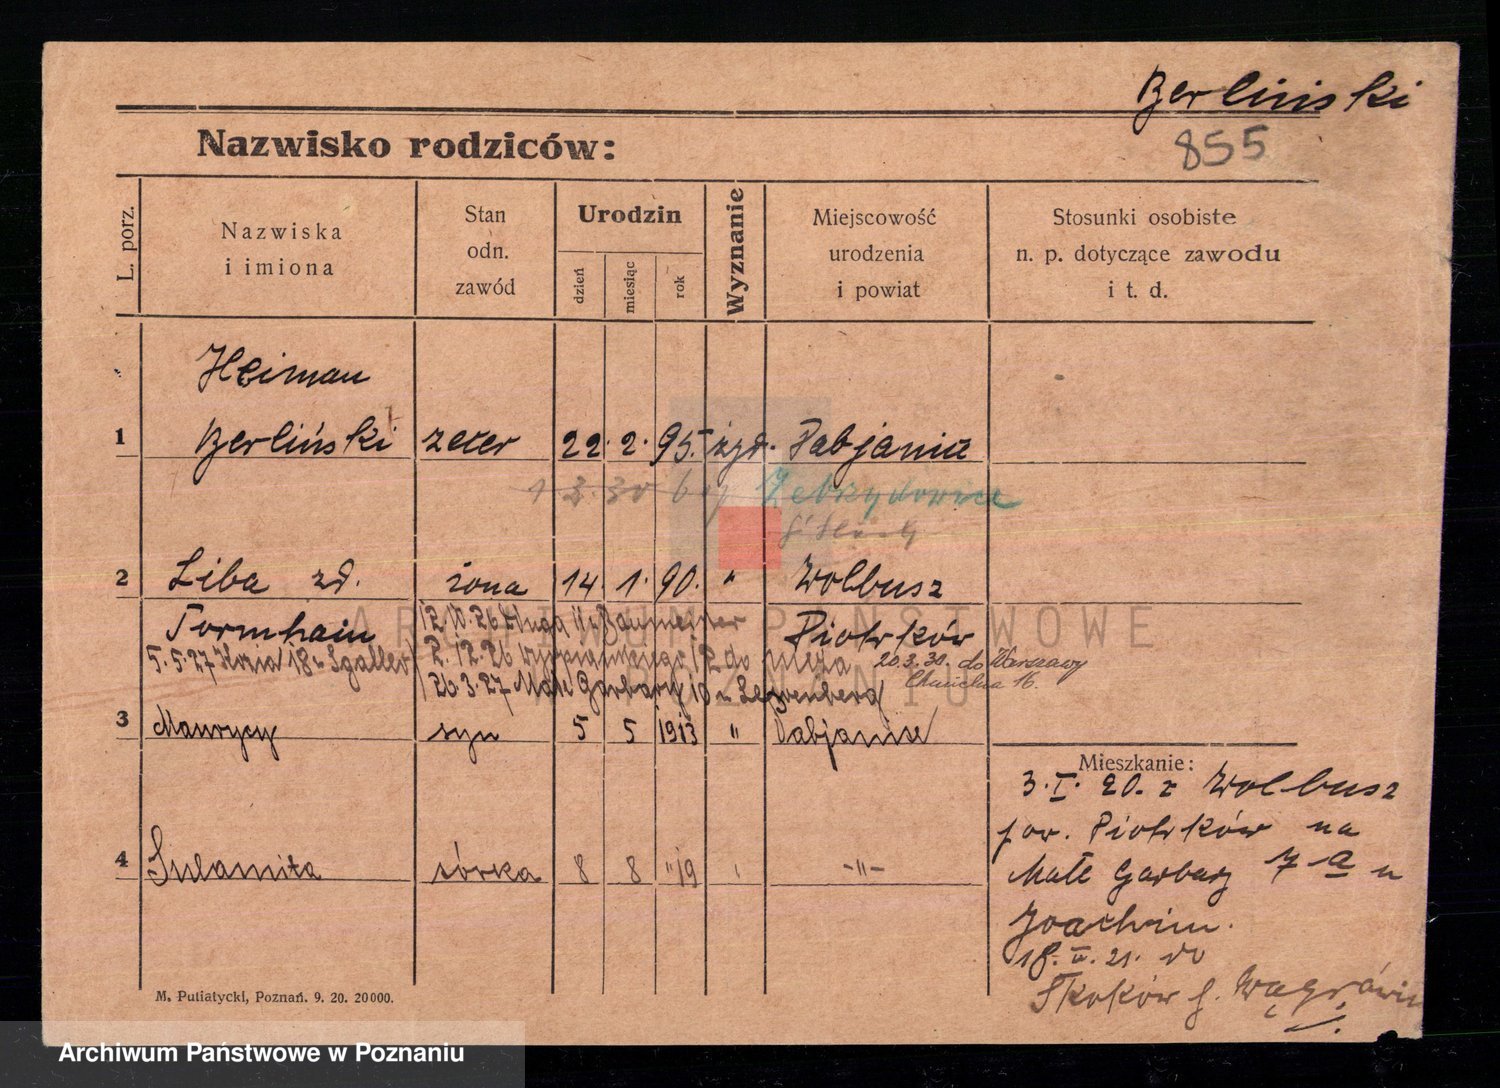 Berliński
855
Nazwisko rodziców:
L. porz.
Nazwiska
i imiona
Stan
odn.
zawód
Urodzin
dzień
miesiąc
rok
Wyznanie
Miejscowość
urodzenia
i powiat
Stosunki osobiste
n. p. dotyczące zawodu
i t. d.
Heiman
1 Berliński zecer 22. 2. 95. żyd. Pabjanice
1 3. 30 Zebrzydowice
2 Liba zd. żona 14. 1. 90. " Wolbusz
12.10.26 Długa 11
Piotrków
5.5.27 18 2.12.26 12 do
20.3.30. do Warszawy
26.3.27 Małe Garbary 10 u
16.
3 Maurycy syn 5 5 1913 " Pabjanice
4 Sulamita córka 8 8 "19 -"-
Mieszkanie:
3. I. 20. z Wolbusz
pow. Piotrków na
Małe Garbary 7 a u
Joachim.
18. 21. do
Skoków p. Wągrówiec
M. Putiatycki, Poznań. 9. 20. 20000.
ARCHIWUM PAŃSTWOWE
W POZNANIU
Archiwum Państwowe w Poznaniu